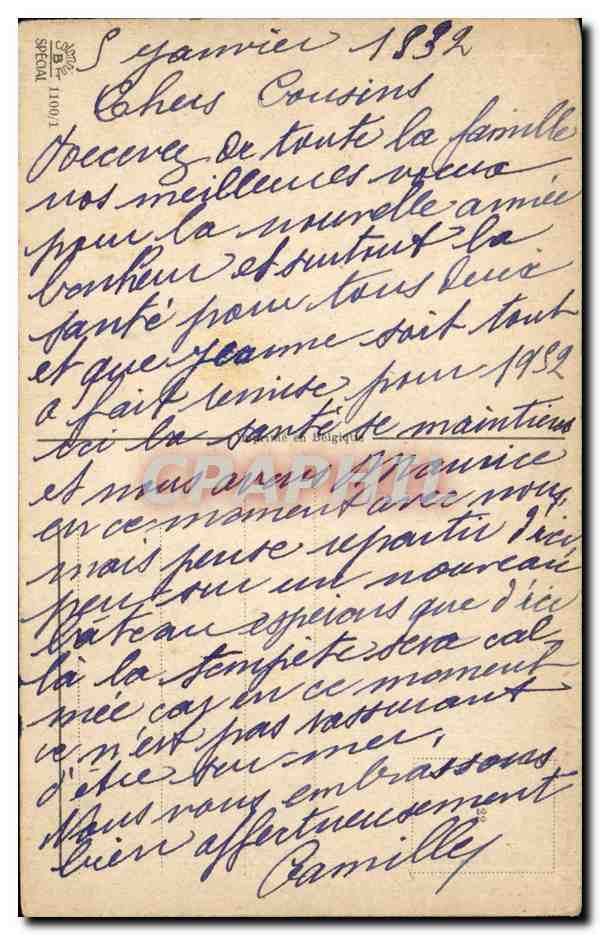 5 Janvier 1932
Chers Cousins
Recevez de toute la famille
nos meilleures voeux
pour la nouvelle année
bonheur et surtout la
santé pour tous deux
et que Jeanne soit tout
a fait remise pour 1932
ici la santé se maintiens
et nous avons Maurice
en ce moment avec nous,
mais pense repartir d'ici
peu sur un nouveau
bâteau esperons que d'ici
là la tempête sera cal-
mée car en ce moment
ce n'est pas rassurant
d'être sur mer.
Nous vous embrassons
bien affectueusement
Camille
Imprimé en Belgique
SPÉCIAL 1100/1
B
CPAPHIL